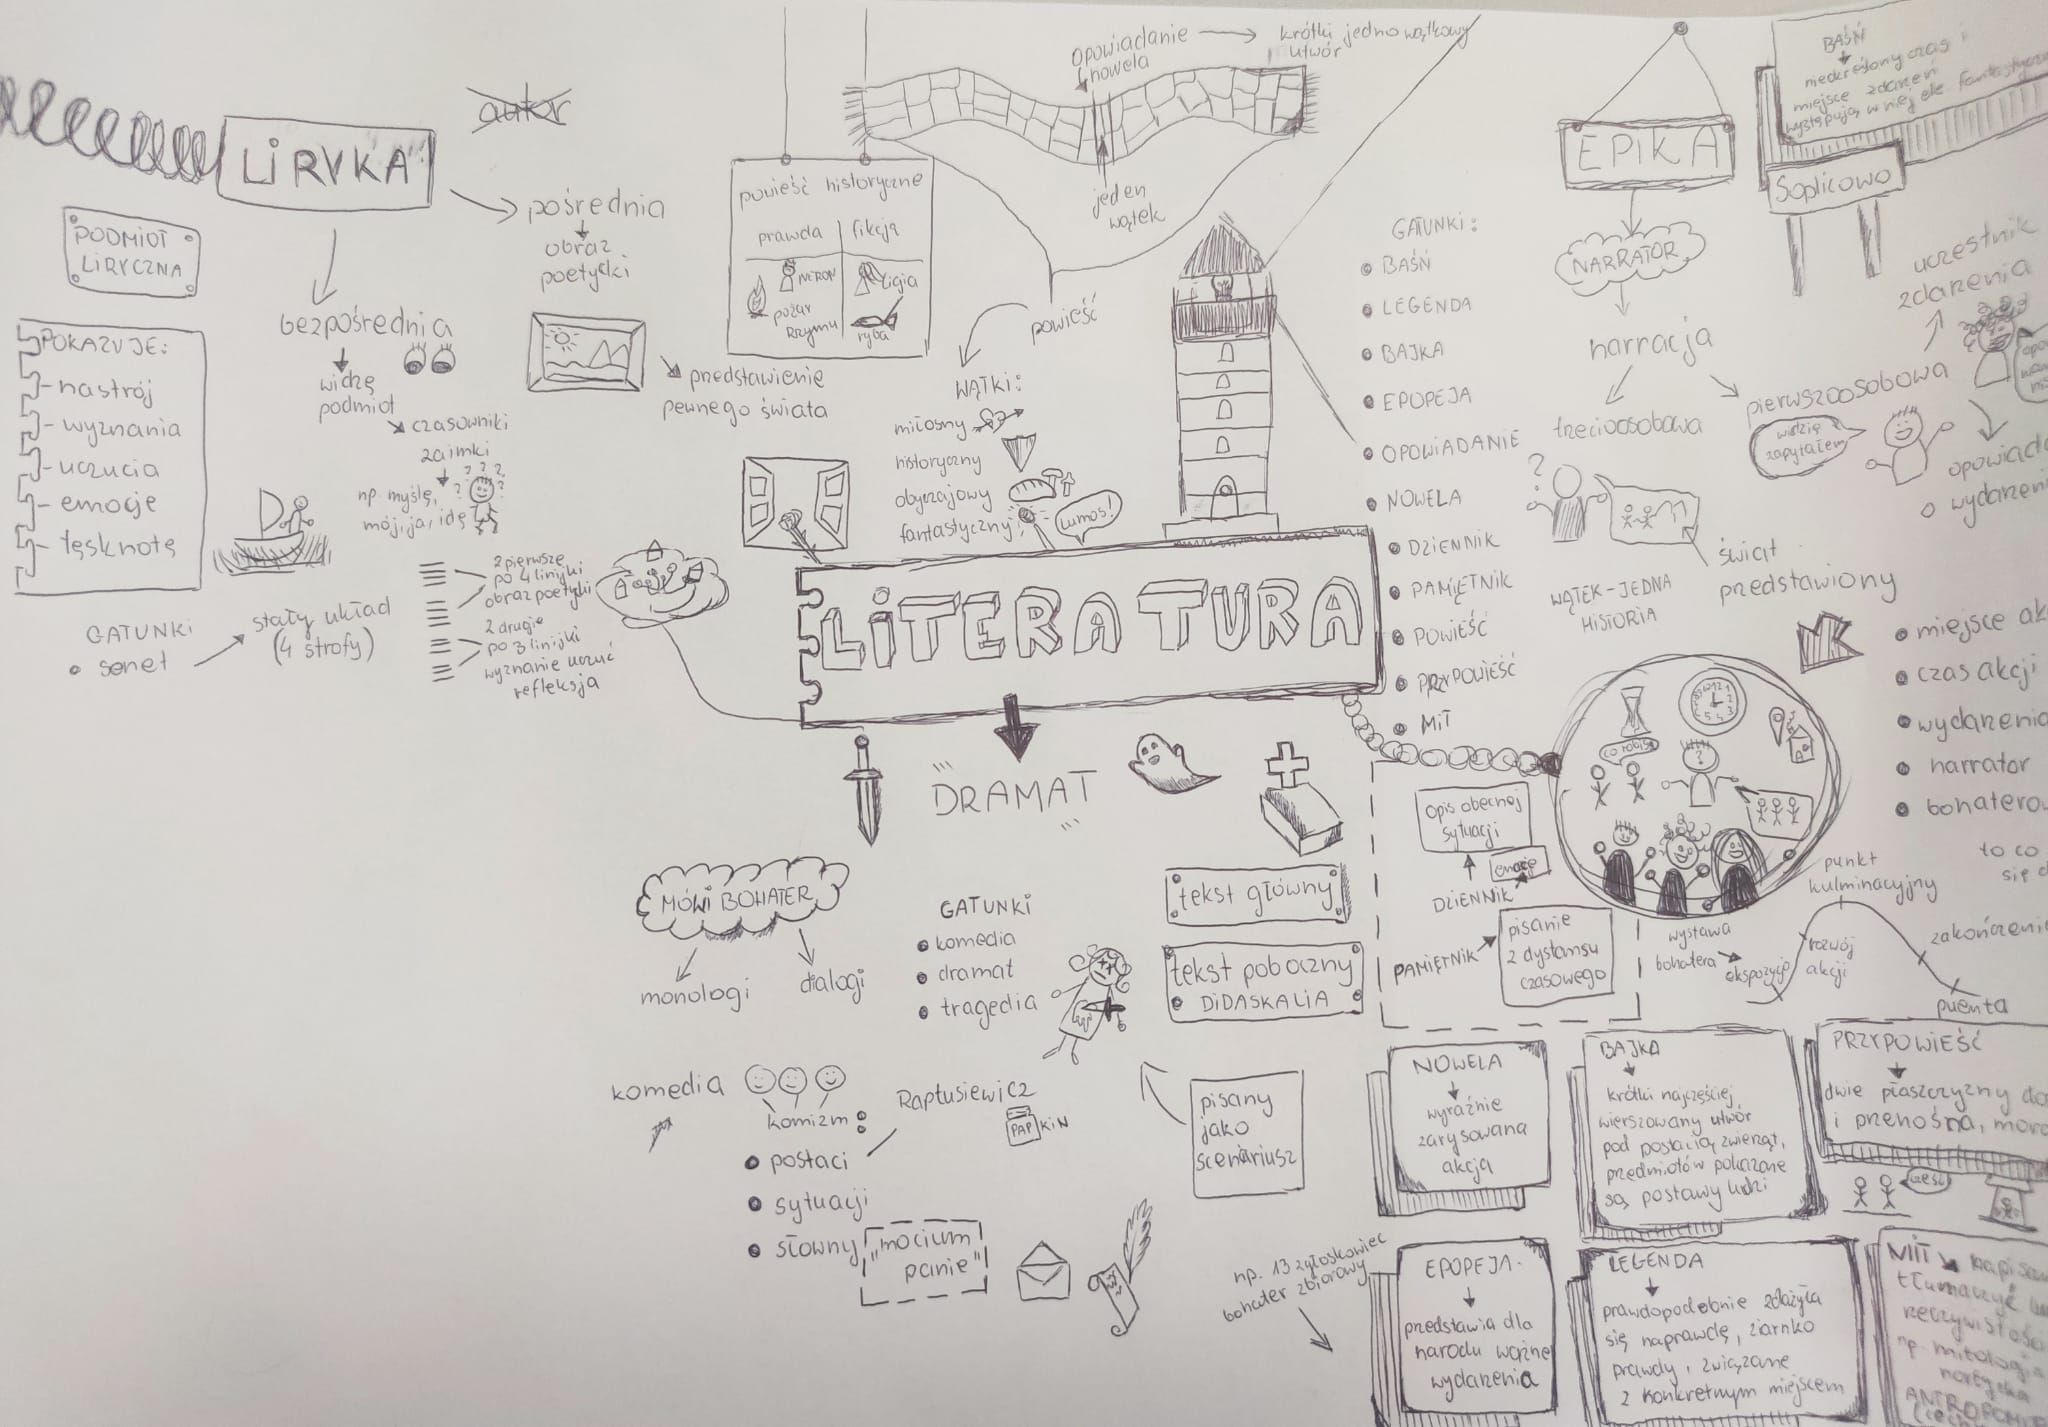 LIRYKA
autor
PODMIOT
LIRYCZNA
POKAZUJE:
- nastrój
- wyznania
- uczucia
- emocje
- tęsknotę
bezpośrednia
widzę
podmiot
czasowniki
zaimki
np. myślę,
mój, ja, idę
? ? ? ? ?
pośrednia
obraz
poetycki
przedstawienie
pewnego świata
GATUNKI
sonet
stały układ
(4 strofy)
2 pierwsze
po 4 linijki
obraz poetycki
2 drugie
po 3 linijki
wyznanie uczuć
refleksja
powieść historyczne
prawda
fikcja
NERON
pożar
Rzymu
Ligia
ryba
opowiadanie
nowela
krótki jedno wątkowy
utwór
jeden
wątek
powieść
WĄTKI:
miłosny
historyczny
obyczajowy
fantastyczny
Lumos!
LITERATURA
GATUNKI:
BAŚŃ
LEGENDA
BAJKA
EPOPEJA
OPOWIADANIE
NOWELA
DZIENNIK
PAMIĘTNIK
POWIEŚĆ
PRZYPOWIEŚĆ
MIT
EPIKA
NARRATOR
narracja
trzecioosobowa
pierwszoosobowa
widzę
zapytałem
uczestnik
zdarzenia
opowiada
o wydarzeni
?
świat
przedstawiony
WĄTEK - JEDNA
HISTORIA
miejsce ak
czas akcji
wydarzenia
narrator
bohaterow
to co
się d
BAŚŃ
nieokreślony czas i
miejsce zdarzeń
występują w niej ele fantastyczne
Soplicowo
DRAMAT
MÓWI BOHATER
monologi
dialogi
GATUNKI
komedia
dramat
tragedia
tekst główny
tekst poboczny
DIDASKALIA
pisany
jako
scenariusz
komedia
komizm:
postaci
sytuacji
słowny
Raptusiewicz
PAPKIN
"mocium
panie"
opis obecnej
sytuacji
emocje
DZIENNIK
PAMIĘTNIK
pisanie
z dystansu
czasowego
co robisz
wystawa
bohatera
ekspozycja
rozwój
akcji
punkt
kulminacyjny
zakończenie
puenta
NOWELA
wyraźnie
zarysowana
akcja
BAJKA
krótki najczęściej
wierszowany utwór
pod postacią zwierząt,
przedmiotów pokazane
są postawy ludzi
PRZYPOWIEŚĆ
dwie płaszczyzny do
i przenośna, mora
cześć
np. 13 zgłoskowiec
bohater zbiorowy
EPOPEJA
przedstawia dla
narodu ważne
wydarzenia
LEGENDA
prawdopodobnie zdażyła
się naprawdę, ziarnko
prawdy, związane
z konkretnym miejscem
MIT
napisan
tłumaczyć
rzeczywistoś
np. mitologia
nordycka